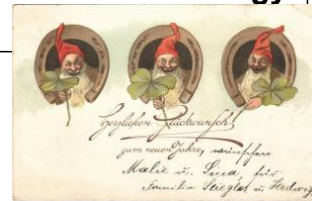 gy
Herzlichen Glückwunsch
zum neuen Jahre, wünschen
Malie u. Lina, für
Familie u Hedwig